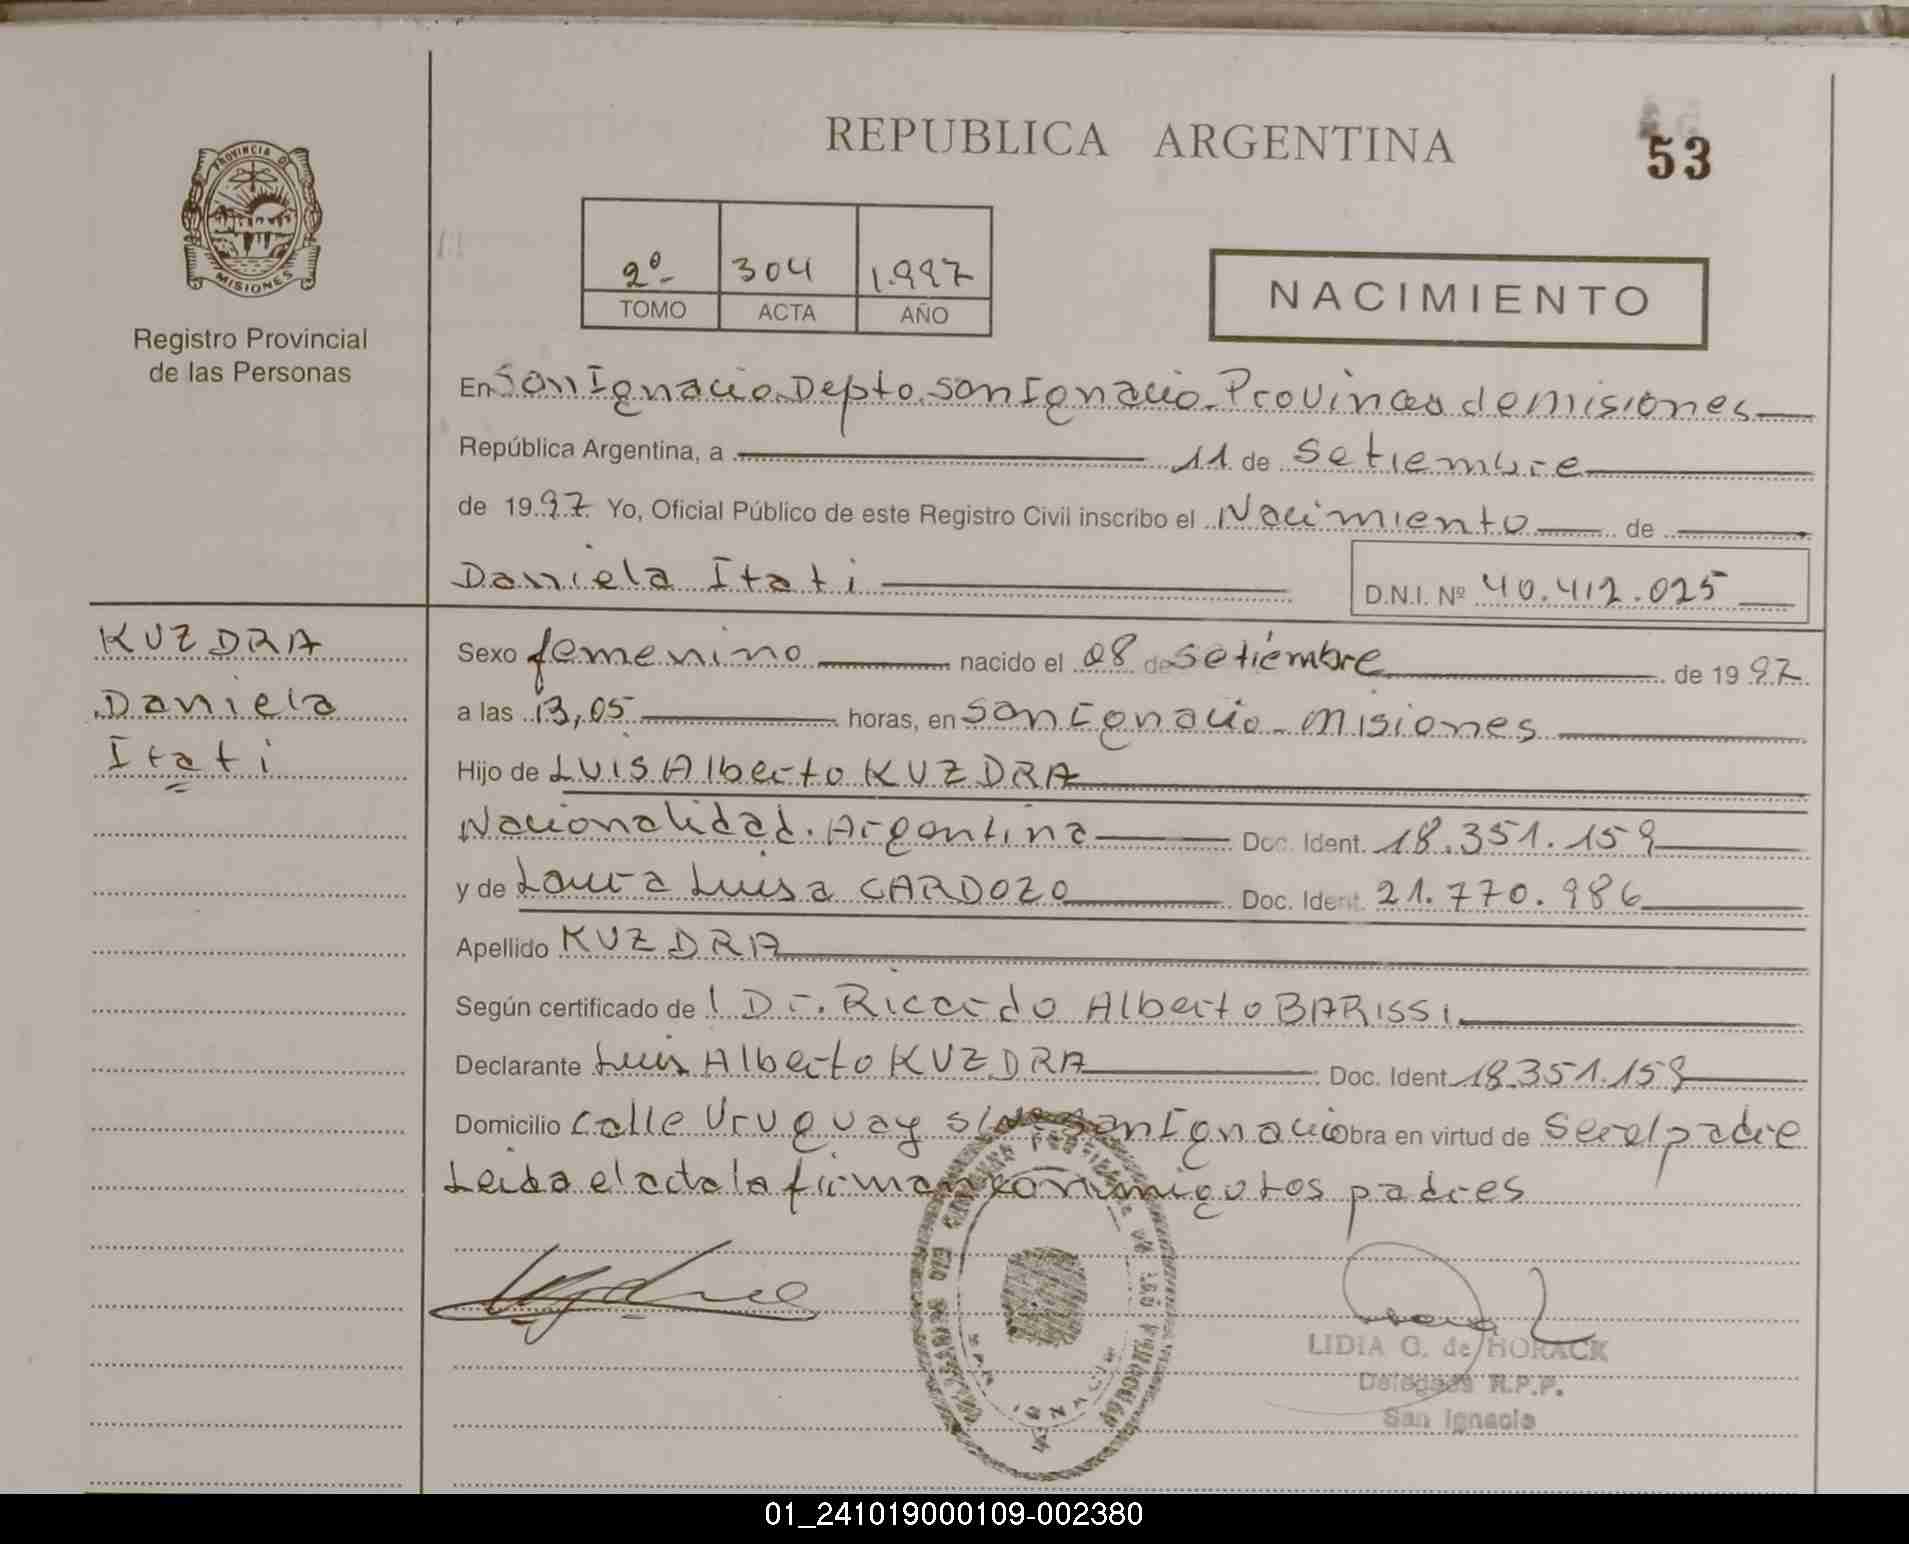 REPUBLICA ARGENTINA
53
PROVINCIA DE
MISIONES
Registro Provincial
de las Personas
2º- 304 1.997
TOMO ACTA AÑO
NACIMIENTO
En San Ignacio. Depto. San Ignacio. Provincia de Misiones
República Argentina, a 11 de Setiembre
de 1997. Yo, Oficial Público de este Registro Civil inscribo el Nacimiento de
Daniela Itati
D.N.I. Nº 40.412.025
KUZDRA
Daniela
Itati
Sexo femenino nacido el 08 de Setiembre de 1997.
a las 13,05 horas, en San Ignacio - Misiones
Hijo de Luis Alberto KUZDRA
Nacionalidad. Argentina Doc. Ident. 18.351.159
y de Laura Luisa CARDOZO Doc. Ident. 21.770.986
Apellido KUZDRA
Según certificado de l Dr. Ricardo Alberto BARISSI
Declarante Luis Alberto KUZDRA Doc. Ident. 18.351.159
Domicilio Calle Uruguay s/Nº San Ignacio obra en virtud de Ser el padre
Leida el acta la firman conmigo los padres
LIDIA G. de HORACK
Delegada R.P.P.
San Ignacio
01_241019000109-002380